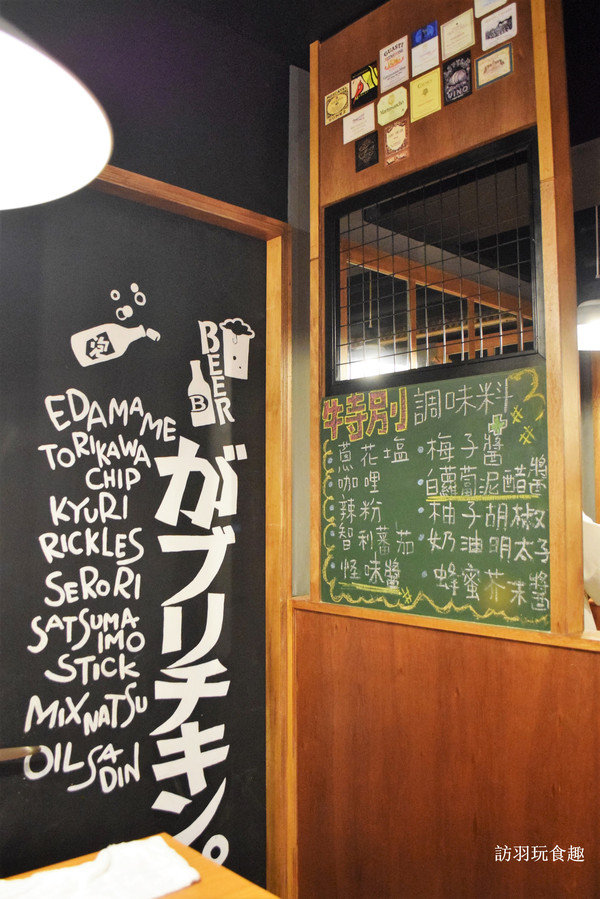 泡
BEER
B
EDAMAME
TORIKAWA
CHIP
KYURI
RICKLES
SERORI
SATSUMA
IMO
STICK
MIXNATSU
OIL SA
DIN
がブリチキン。
GUASTI
VINO
特別調味料
蔥花塩
咖哩
辣粉
智利蕃茄
怪味醬
梅子醬
白蘿蔔泥醋醬
柚子胡椒
奶油明太子
蜂蜜芥末醬
訪羽玩食趣